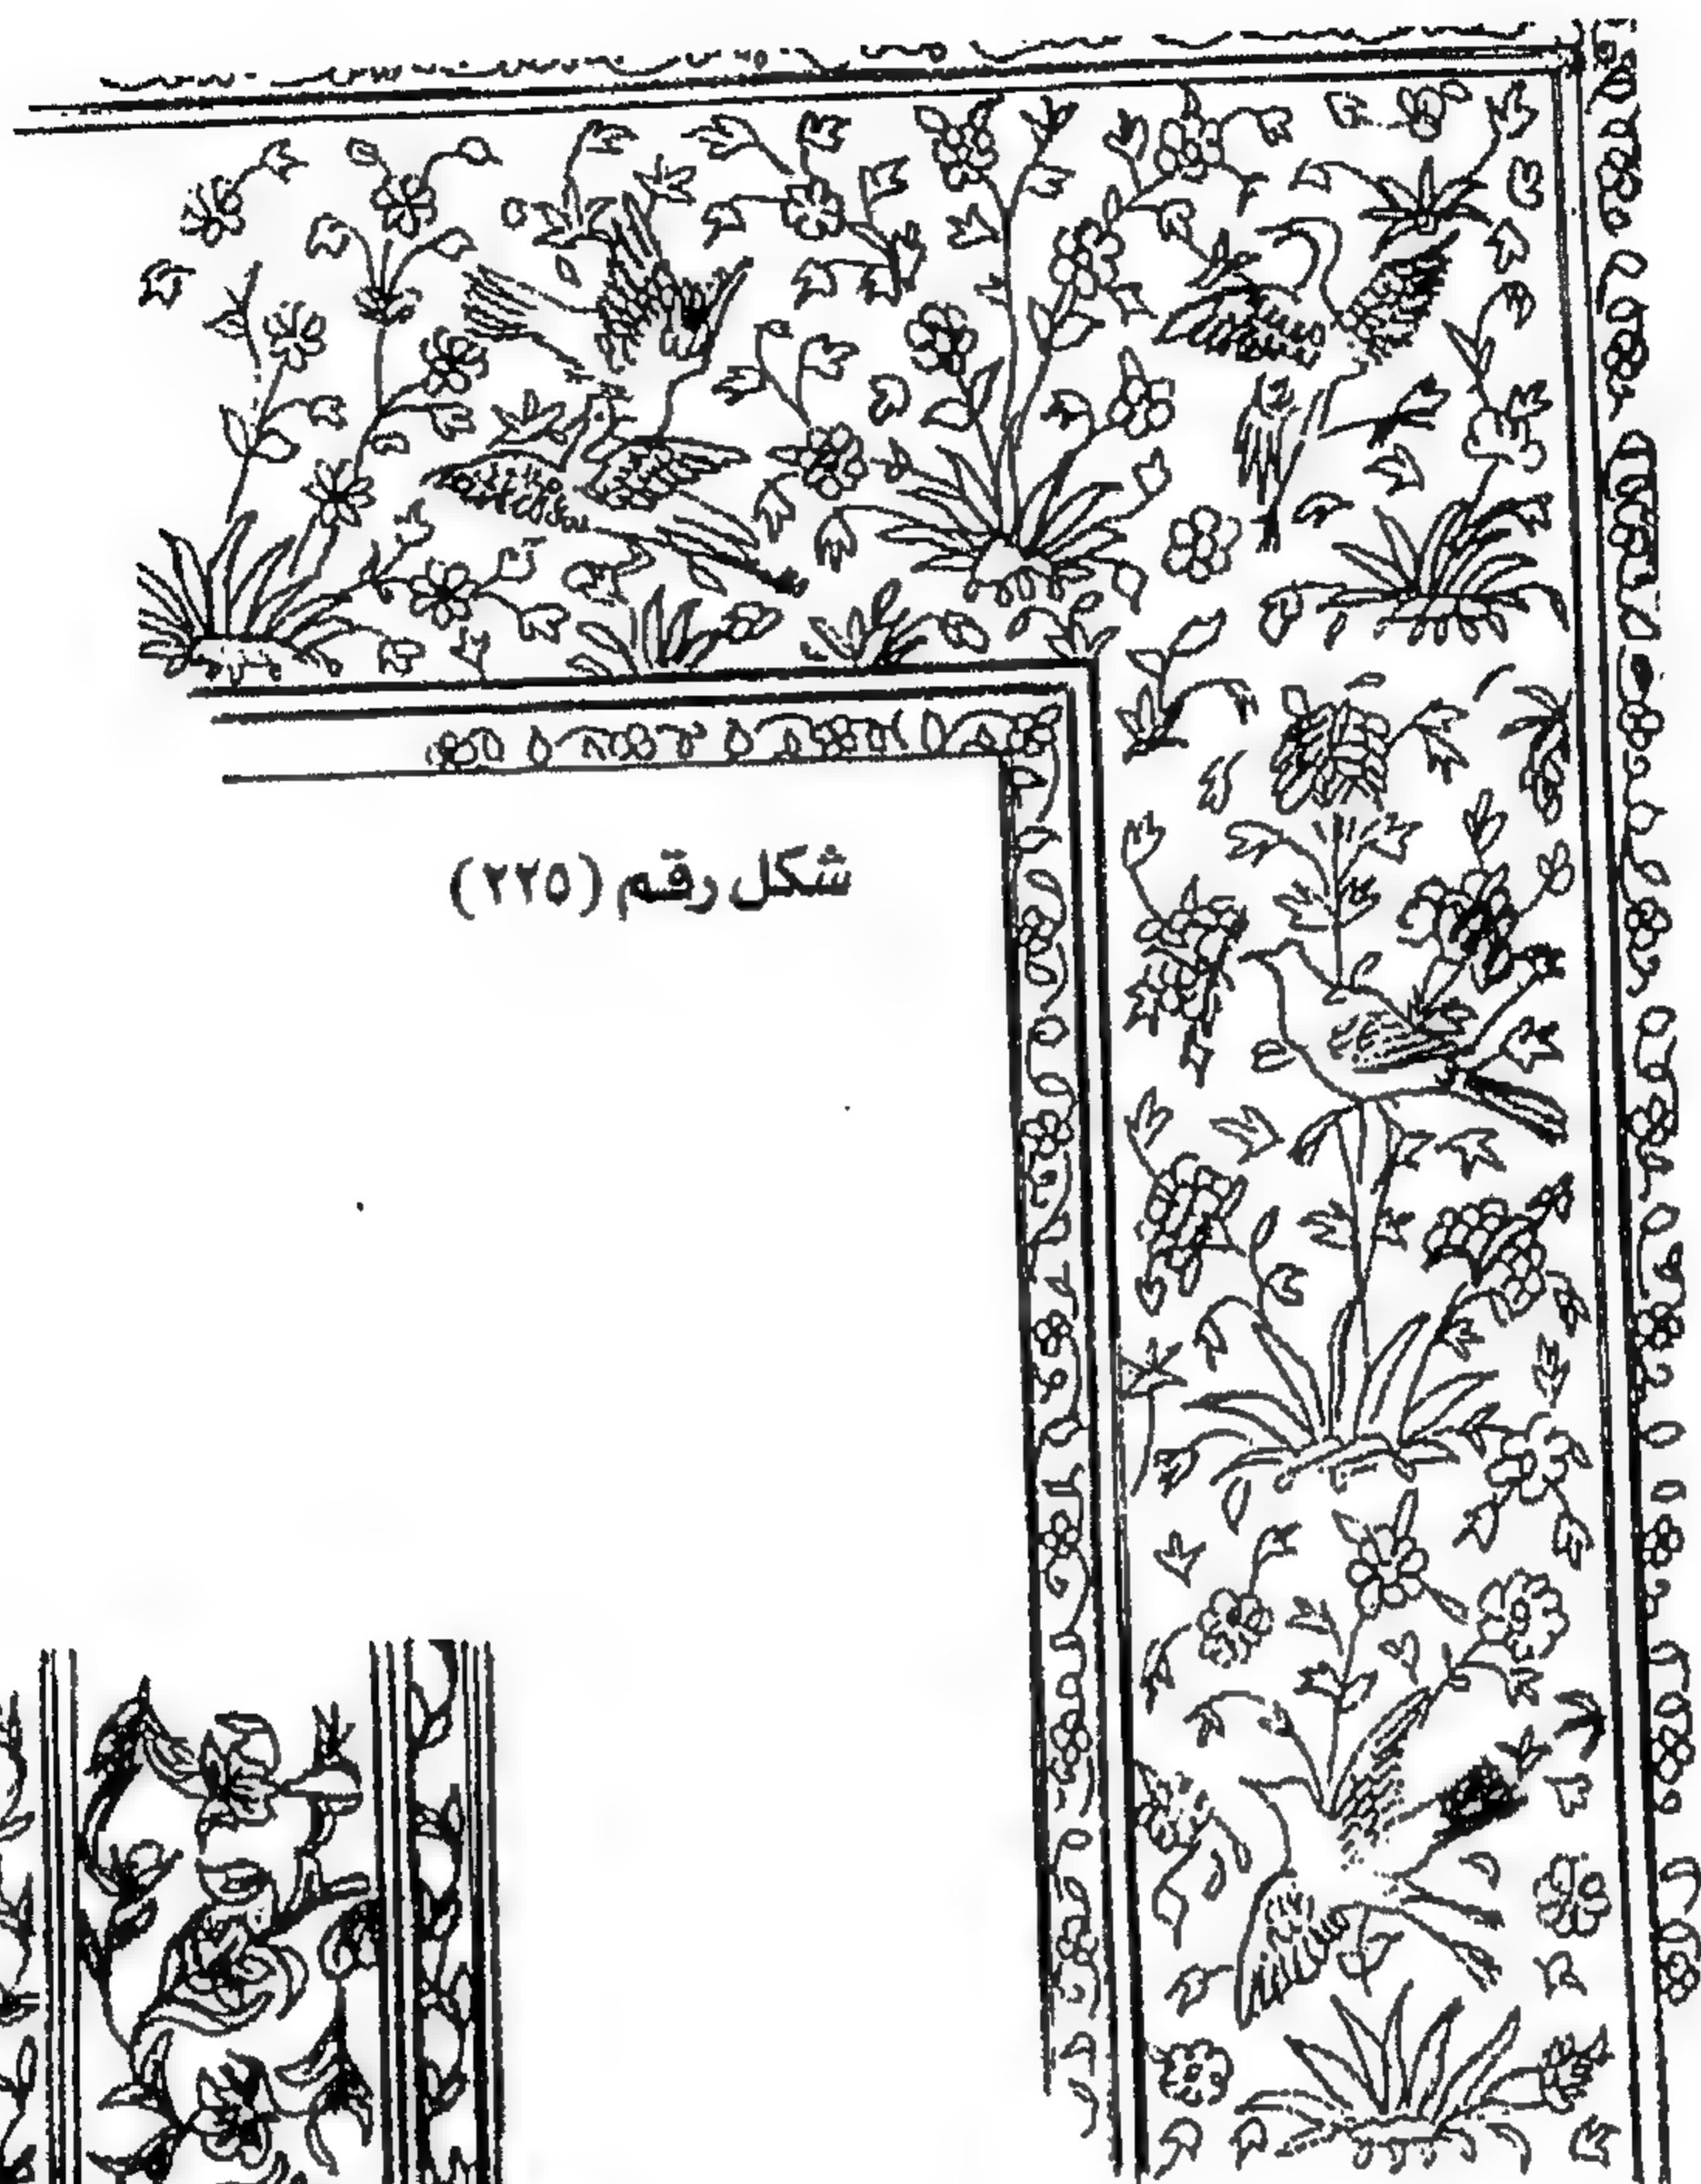 شكل رقم (٢٢٥)